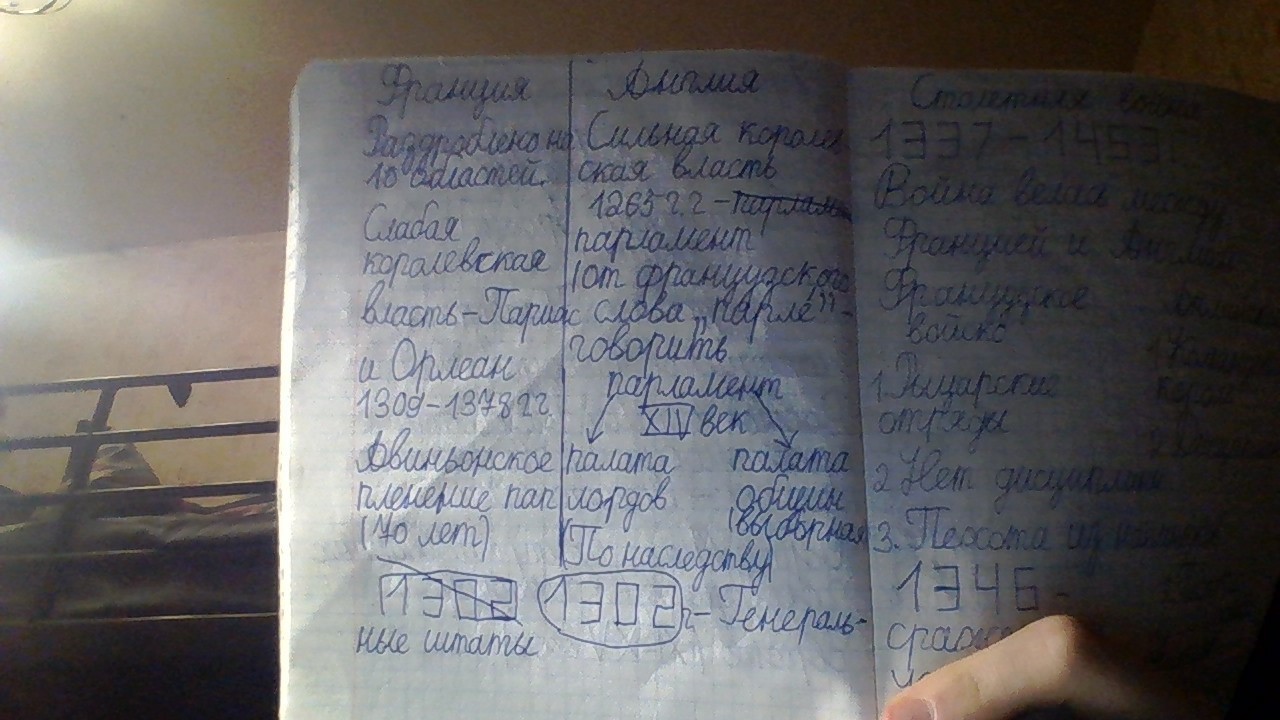 Франция
Раздроблено на
10 областей.
Слабая
королевская
власть - Париж
и Орлеан
1309-1378 г г.
Авиньонское
пленение пап
(70 лет)
1302
Англия
Сильная королев
ская власть
1265 г г - парлам
парламент
(от французского
слова "парле" -
говорить
парламент
XIV век
палата палата
лордов общин
(выборная
(По наследству)
1302 г - Генераль-
ные штаты
Столетняя война
1337-1453
Война велась между
Францией и Англией
Французское
войско
1. Рыцарские
отряды
2 Нет дисциплины
3. Пехота из
1346 -